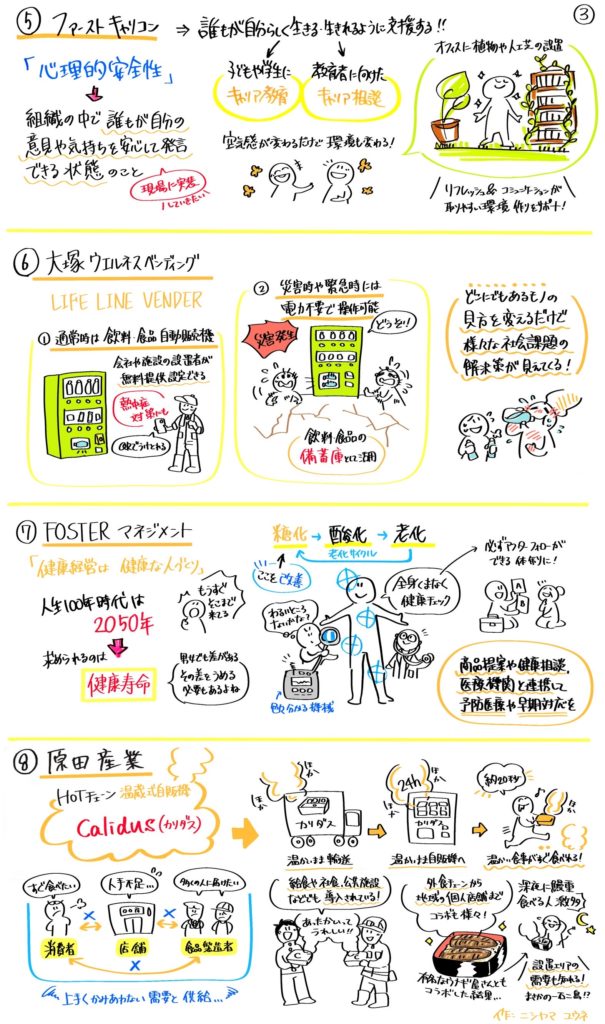 ③
⑤ ファーストキャリコン → 誰もが自分らしく生きる・生きれるように支援する!!
「心理的安全性」
組織の中で誰もが自分の
意見や気持ちを安心して発言
できる状態のこと
現場に実装
していきたい
子どもや学生に
キャリア教育
教育者に向けた
キャリア相談
空気感が変わるだけで環境も変わる!
オフィスに植物や人工芝の設置
リフレッシュ& コミュニケーションが
取りやすい環境作りをサポート!
⑥ 大塚ウエルネスベンディング
LIFE LINE VENDER
① 通常時は飲料・食品自動販売機
会社や施設の設置者が
無料提供設定できる
熱中症
対策にも
② 災害時や緊急時には
電力不要で操作可能
災害発生
どうぞ!!
飲料・食品の
備蓄庫として活用
どこにでもあるモノの
見方を変えるだけで
様々な社会課題の
解決策が見えてくる!
⑦ FOSTER マネジメント
「健康経営は 健康な人づくり」
人生100年時代は
2050年
もうすぐ
そこまで
来てる
求められるのは
健康寿命
男女でも差がある
その差をうめる
必要もあるよね
糖化→酸化→老化
老化サイクル
ここを改善
わるいところ
ないかな?
全身くまなく
健康チェック
必ずアフターフォローが
できる体作りに!
商品提案や健康相談、
医療機関と連携して
予防医療や早期対応を
⑧ 原田産業
HOTチェーン 温蔵式自販機
Calidus(カリダス)
すぐ食べたい
人手不足...
多くの人に届けたい
消費者
店舗
食品製造者
上手くかみあわない需要と供給...
ほか
ほか
カリダス
温かいまま輸送
24h
ほか
ほか
カリダス
温かいまま自販機へ
約20秒
温かい食事がすぐ食べれる!
給食や社食、公共施設
などでも導入されている!
あったかいって
うれしい!!
外食チェーンから
地域の個人店舗まで
コラボも様々!
有名なウナギ屋さんとも
コラボした結果...
深夜に鰻重
食べる人多数
設置エリアの
需要も分かる!
まさかの一石二鳥!?
作:ニシヤマ ユウネ